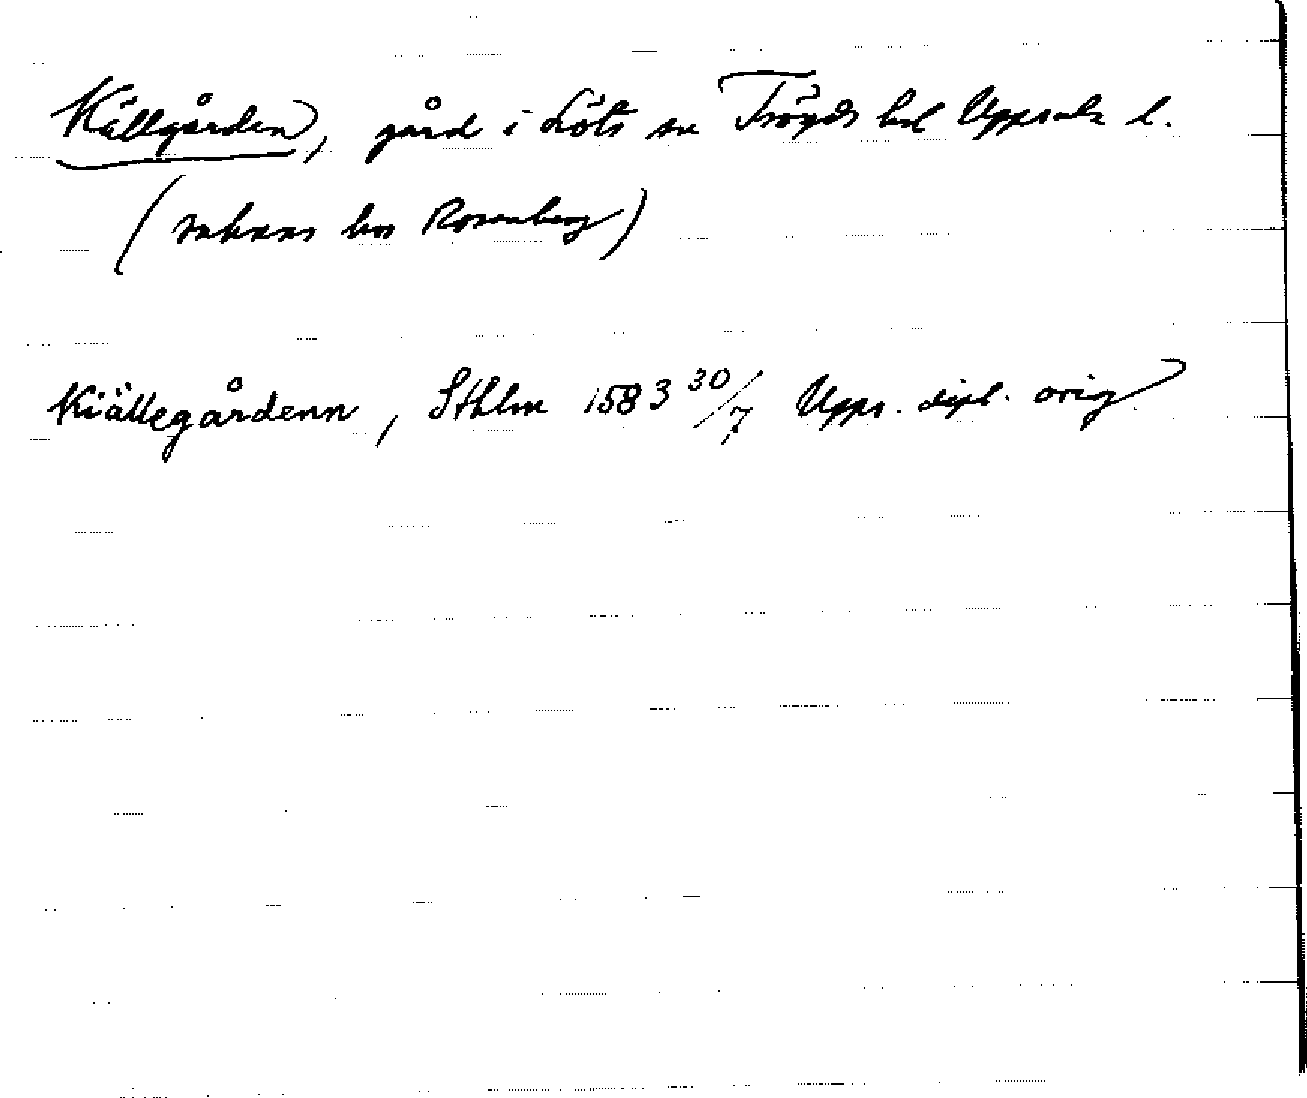 Källgården, gård i Löts sn Trögds hd Uppsala l.
(saknas hos Rosenberg)
Kiällegårdenn, Sthlm 1583 30/7 Upps. dipl. orig